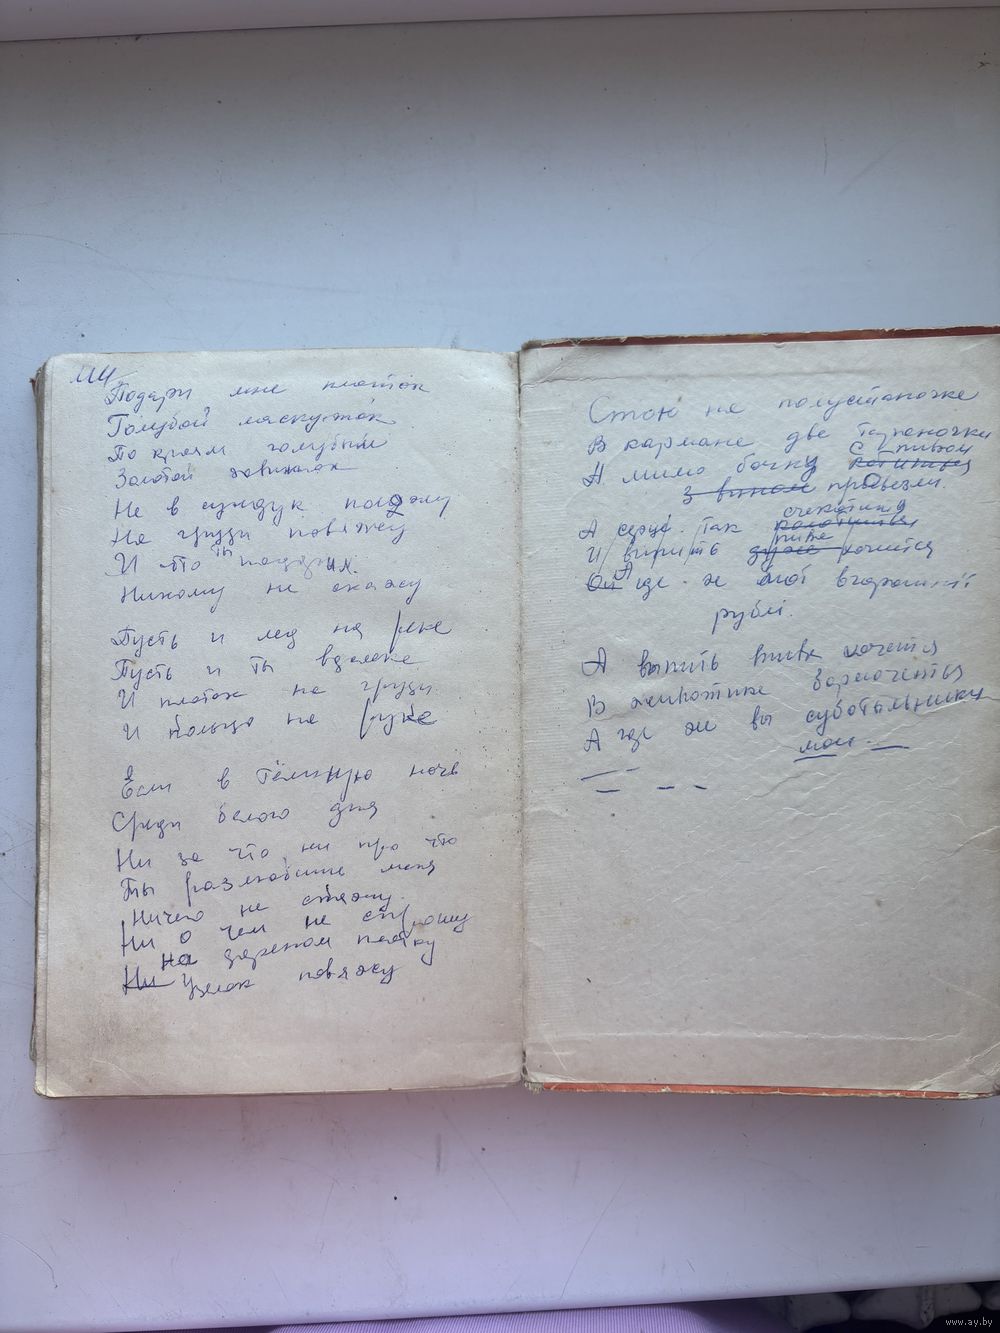 Подари мне платок
Голубой ласкуток
По краям голубым
Золотой завиток
Не в сундук положу
На груди повяжу
И что ты подарил
Никому не скажу
Пусть и лед на реке
Пусть и ты вдалеке
И платок на груди
И кольцо на руке
Если в тёмную ночь
Среди белого дня
Ни за что ни про что
Ты разлюбишь меня
Ничего не скажу
Ни о чем не спрошу
на
Ни узелок повяжу
Стою на полустаночке
В кармане две тараночки
с пивом
А мимо бочку
З вином провезли.
А серце так
И выпить пива хочится
Ой А где ж мої
рублі.
А выпить пива хочется
В животике
А где ж вы суботыльники
мои.
www.ay.by